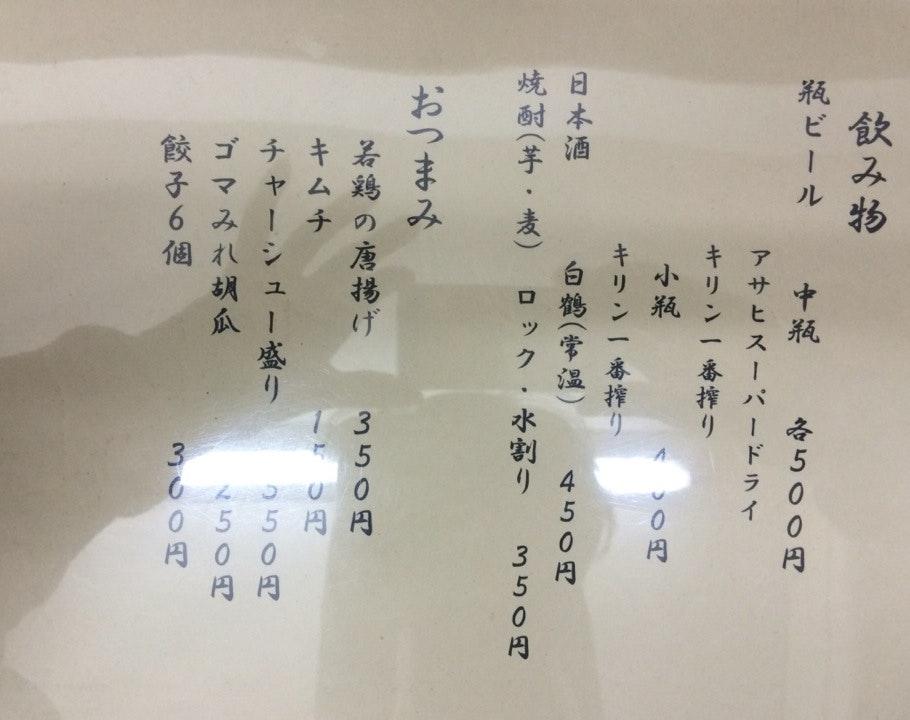 飲み物
瓶ビール 中瓶 各500円
アサヒスーパードライ
キリン一番搾り
小瓶 400円
キリン一番搾り
日本酒 白鶴(常温) 450円
焼酎(芋・麦) ロック・水割り 350円
おつまみ
若鶏の唐揚げ 350円
キムチ 150円
チャーシュー盛り 350円
ゴマみれ胡瓜 250円
餃子6個 300円